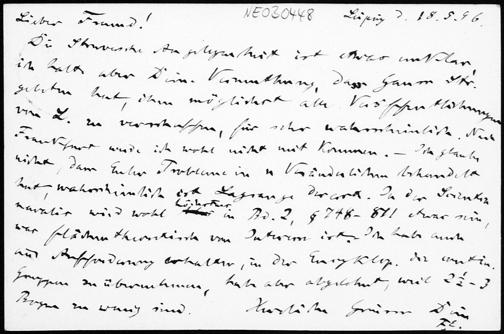 NEO30448
Lieber Freund! Leipzig d. 18.5.96.
Die Struvesche Angelegenheit ist etwas unklar,
ich halte aber Deine Vermuthung, dass Gauss Str.
gebeten hat, ihm möglichst alle Veröffentlichungen
von L. zu verschaffen, für sehr wahrscheinlich. Nach
Frankfurt werde ich wohl nicht mit kommen. — Ich glaube
nicht, dass Euler Probleme in n Veränderlichen behandelt
hat, wahrscheinlich ist Lagrange der erste. In der
wird wohl höchstens in Bd. 2, § 748-811 etwas sein,
was flächentheoretisch von Interesse ist. Ich habe auch
eine Aufforderung erhalten, in der Encyklop. die
Gruppen zu übernehmen, habe aber abgelehnt, weil 2½-3
Bogen zu wenig sind. Herzliche Grüsse Dein